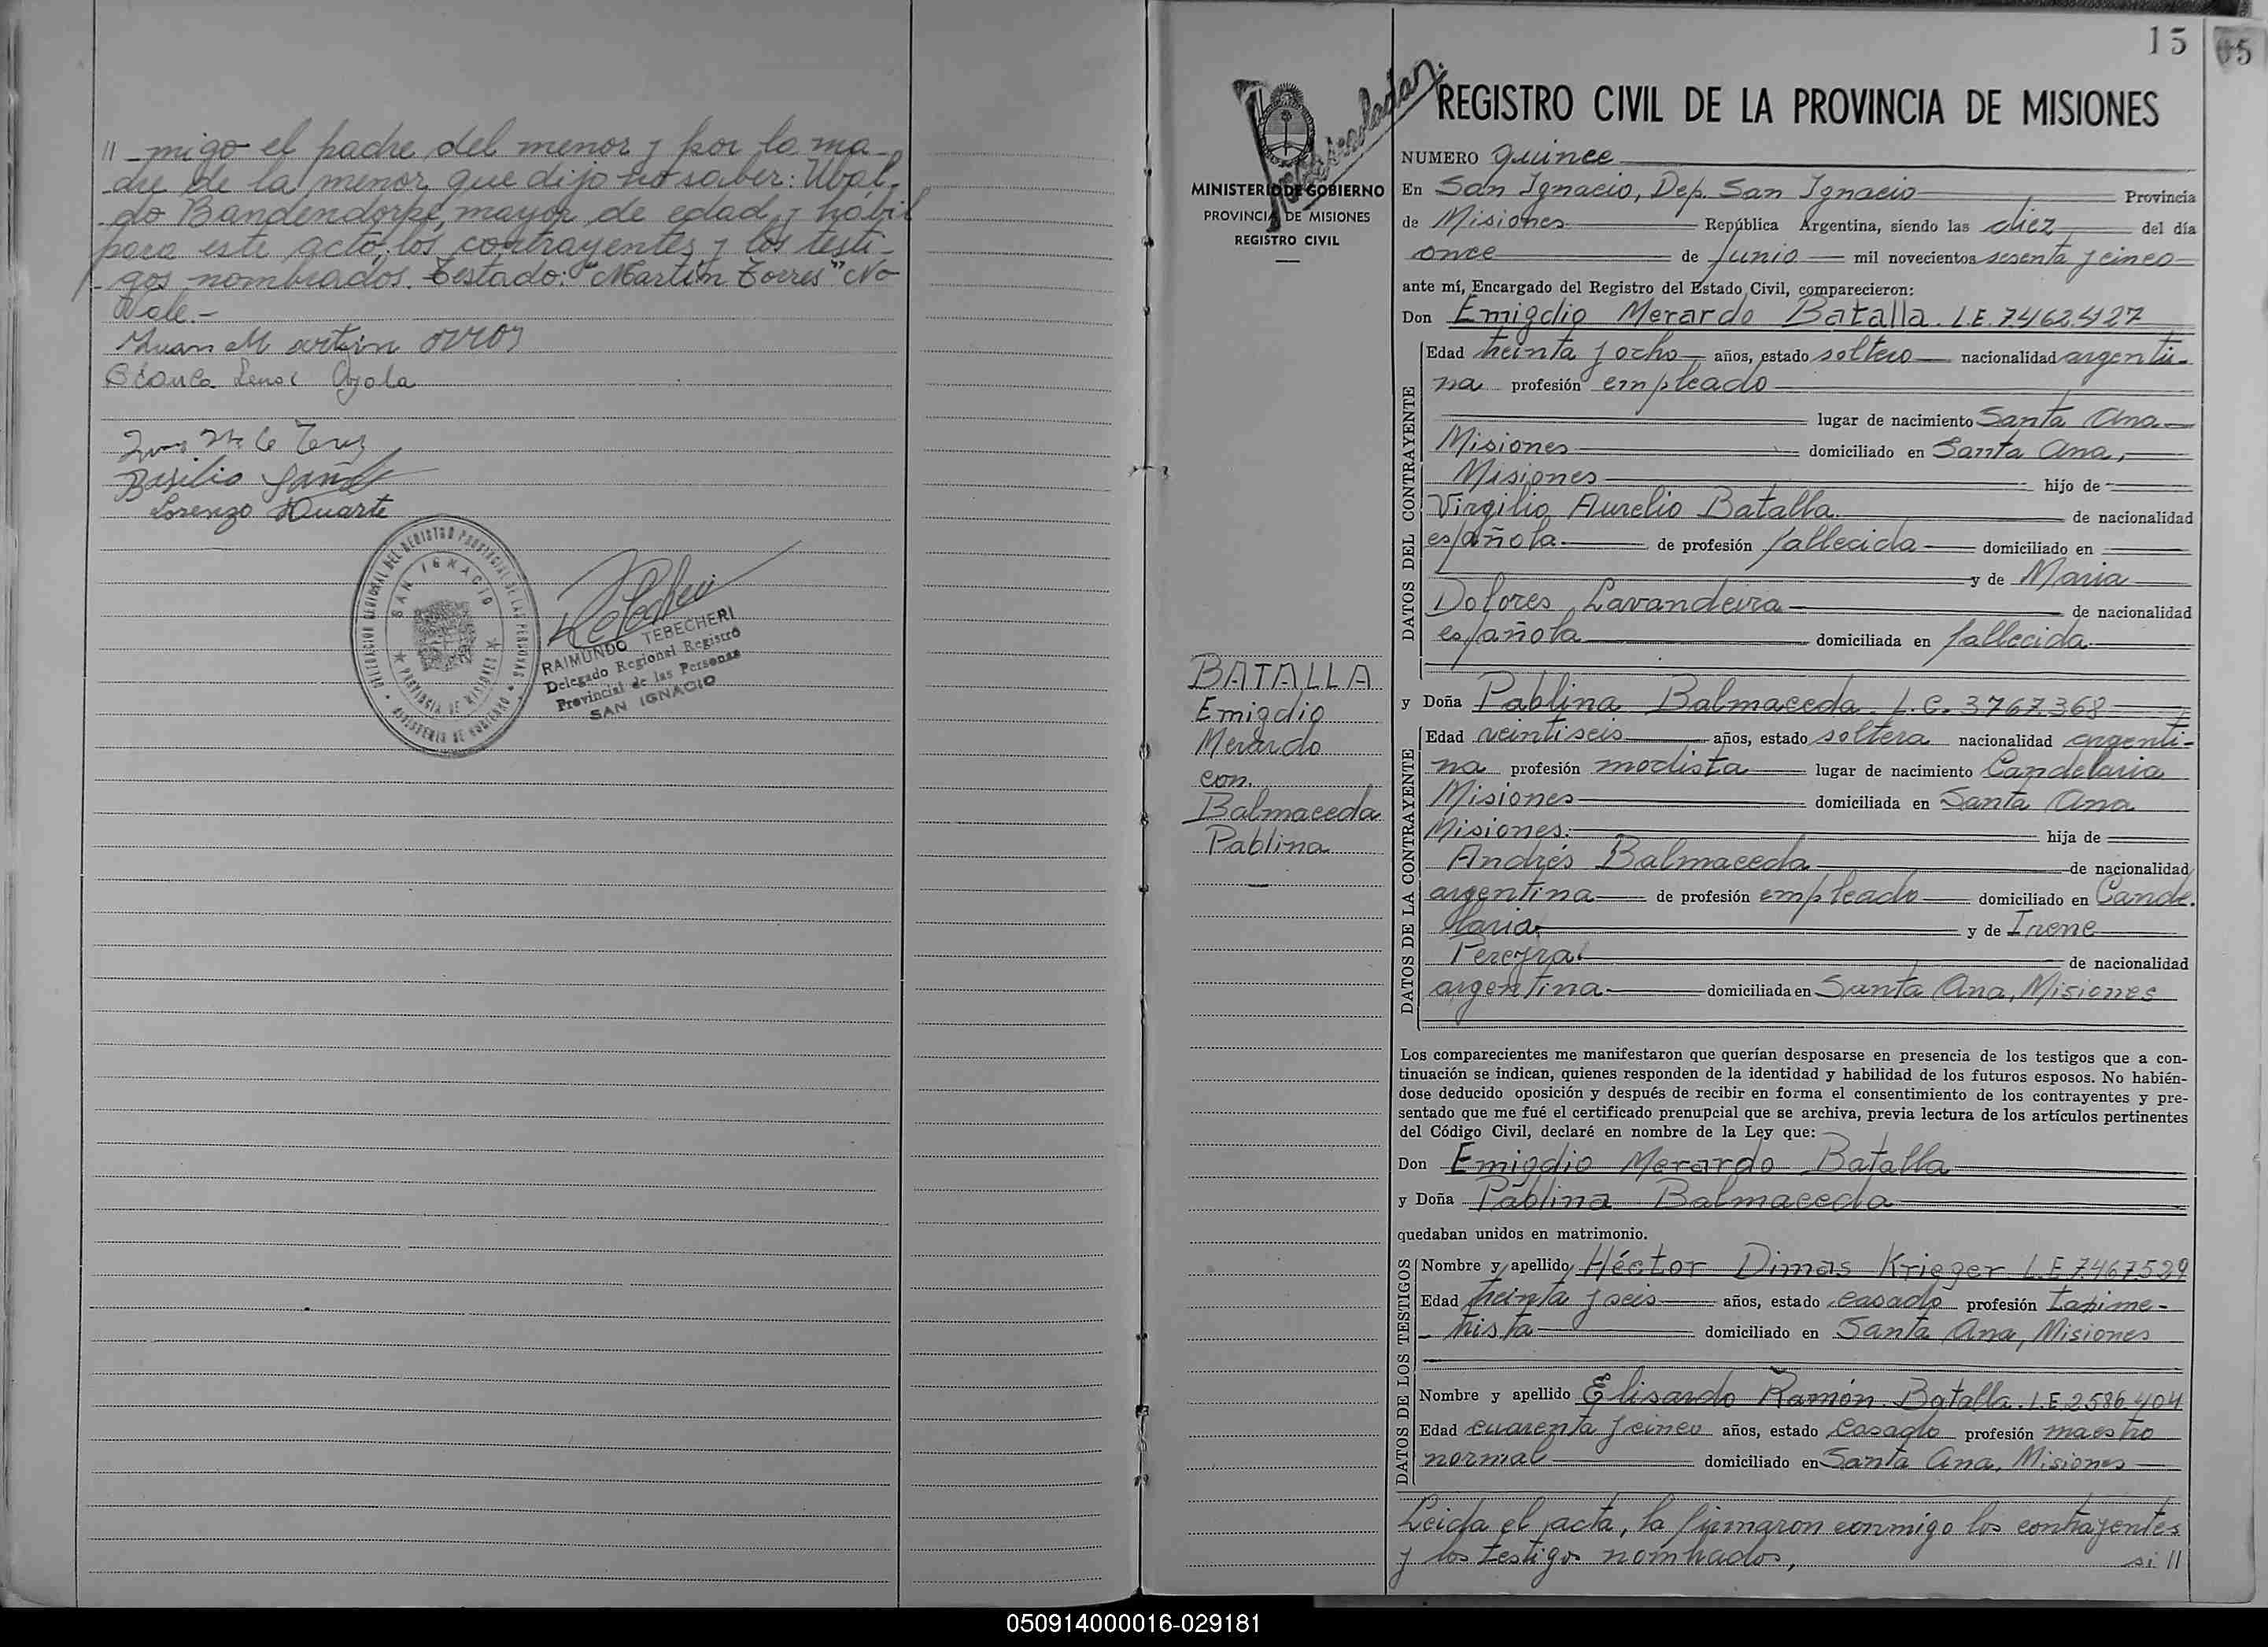 // migo el padre del menor y por la ma-
dre de la menor que dijo no saber: Ubal-
do Bandendorpe, mayor de edad y hábil
para este acto, los contrayentes y los testi-
gos nombrados. Testado: "Martín Torres" No
Vale.-
Juan Martin
Blanca Ayala
Basilio
Lorenzo Duarte
DELEGACION REGIONAL DEL REGISTRO PROVINCIAL DE LAS PERSONAS
SAN IGNACIO
PROVINCIA DE MISIONES
MINISTERIO DE GOBIERNO
RAIMUNDO TEBECHERI
Delegado Regional Registro
Provincial de las Personas
SAN IGNACIO
15
MINISTERIO DE GOBIERNO
PROVINCIA DE MISIONES
REGISTRO CIVIL
BATALLA
Emigdio
Merardo
con.
Balmaceda
Pablina
REGISTRO CIVIL DE LA PROVINCIA DE MISIONES
NUMERO quince
En San Ignacio, Dep. San Ignacio Provincia
de Misiones República Argentina, siendo las diez del día
once de junio mil novecientos sesenta y cinco
ante mí, Encargado del Registro del Estado Civil, comparecieron:
Don Emigdio Merardo Batalla. L.E. 7.462.427
DATOS DEL CONTRAYENTE
Edad treinta y ocho años, estado soltero nacionalidad argenti-
na profesión empleado
lugar de nacimiento Santa Ana
Misiones domiciliado en Santa Ana,
Misiones hijo de
Virgilio Aurelio Batalla de nacionalidad
española de profesión fallecida domiciliado en
y de Maria
Dolores Lavandeira de nacionalidad
española domiciliada en fallecida
y Doña Pablina Balmaceda. L.C. 3.767.368
DATOS DE LA CONTRAYENTE
Edad veintiseis años, estado soltera nacionalidad argenti-
na profesión modista lugar de nacimiento Candelaria
Misiones domiciliada en Santa Ana
Misiones. hija de
Andrés Balmaceda de nacionalidad
argentina de profesión empleado domiciliado en Cande-
laria y de Irene
Pereyra de nacionalidad
argentina domiciliada en Santa Ana, Misiones
Los comparecientes me manifestaron que querían desposarse en presencia de los testigos que a con-
tinuación se indican, quienes responden de la identidad y habilidad de los futuros esposos. No habién-
dose deducido oposición y después de recibir en forma el consentimiento de los contrayentes y pre-
sentado que me fué el certificado prenupcial que se archiva, previa lectura de los artículos pertinentes
del Código Civil, declaré en nombre de la Ley que:
Don Emigdio Merardo Batalla
y Doña Pablina Balmaceda
quedaban unidos en matrimonio.
DATOS DE LOS TESTIGOS
Nombre y apellido Héctor Dimas Krieger L.E. 7.467.529
Edad treinta y seis años, estado casado profesión taxime-
trista domiciliado en Santa Ana, Misiones
Nombre y apellido Elisardo Ramón Batalla. L.E. 2.586.404
Edad cuarenta y cinco años, estado casado profesión maestro
normal domiciliado en Santa Ana, Misiones
Leida el acta, la firmaron conmigo los contrayentes
y los testigos nombrados, si //
050914000016-029181